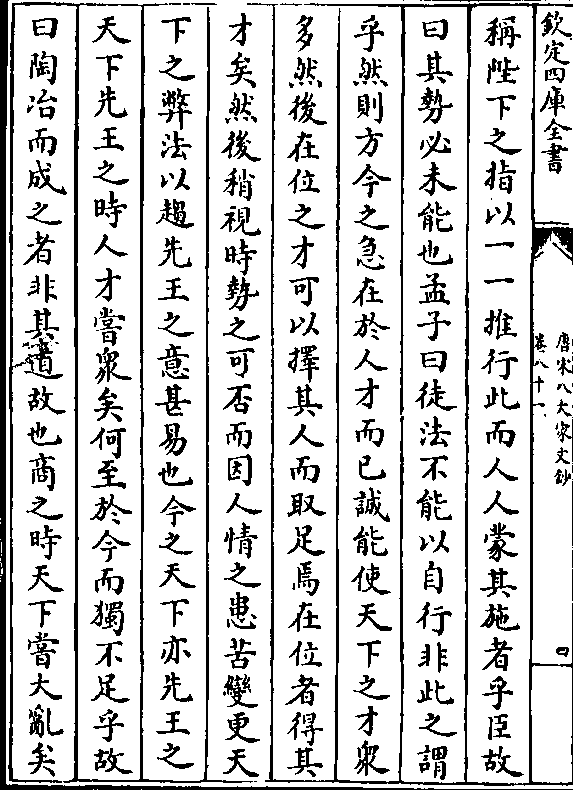 欽定四庫全書
唐宋八大家文鈔
卷八十一
四
稱陛下之指以一一推行此而人人蒙其施者乎臣故
曰其勢必未能也孟子曰徒法不能以自行非此之謂
乎然則方今之急在於人才而已誠能使天下之才衆
多然後在位之才可以擇其人而取足焉在位者得其
才矣然後稍視時勢之可否而因人情之患苦變更天
下之弊法以趨先王之意甚易也今之天下亦先王之
天下先王之時人才嘗衆矣何至於今而獨不足乎故
曰陶冶而成之者非其道故也商之時天下嘗大亂矣